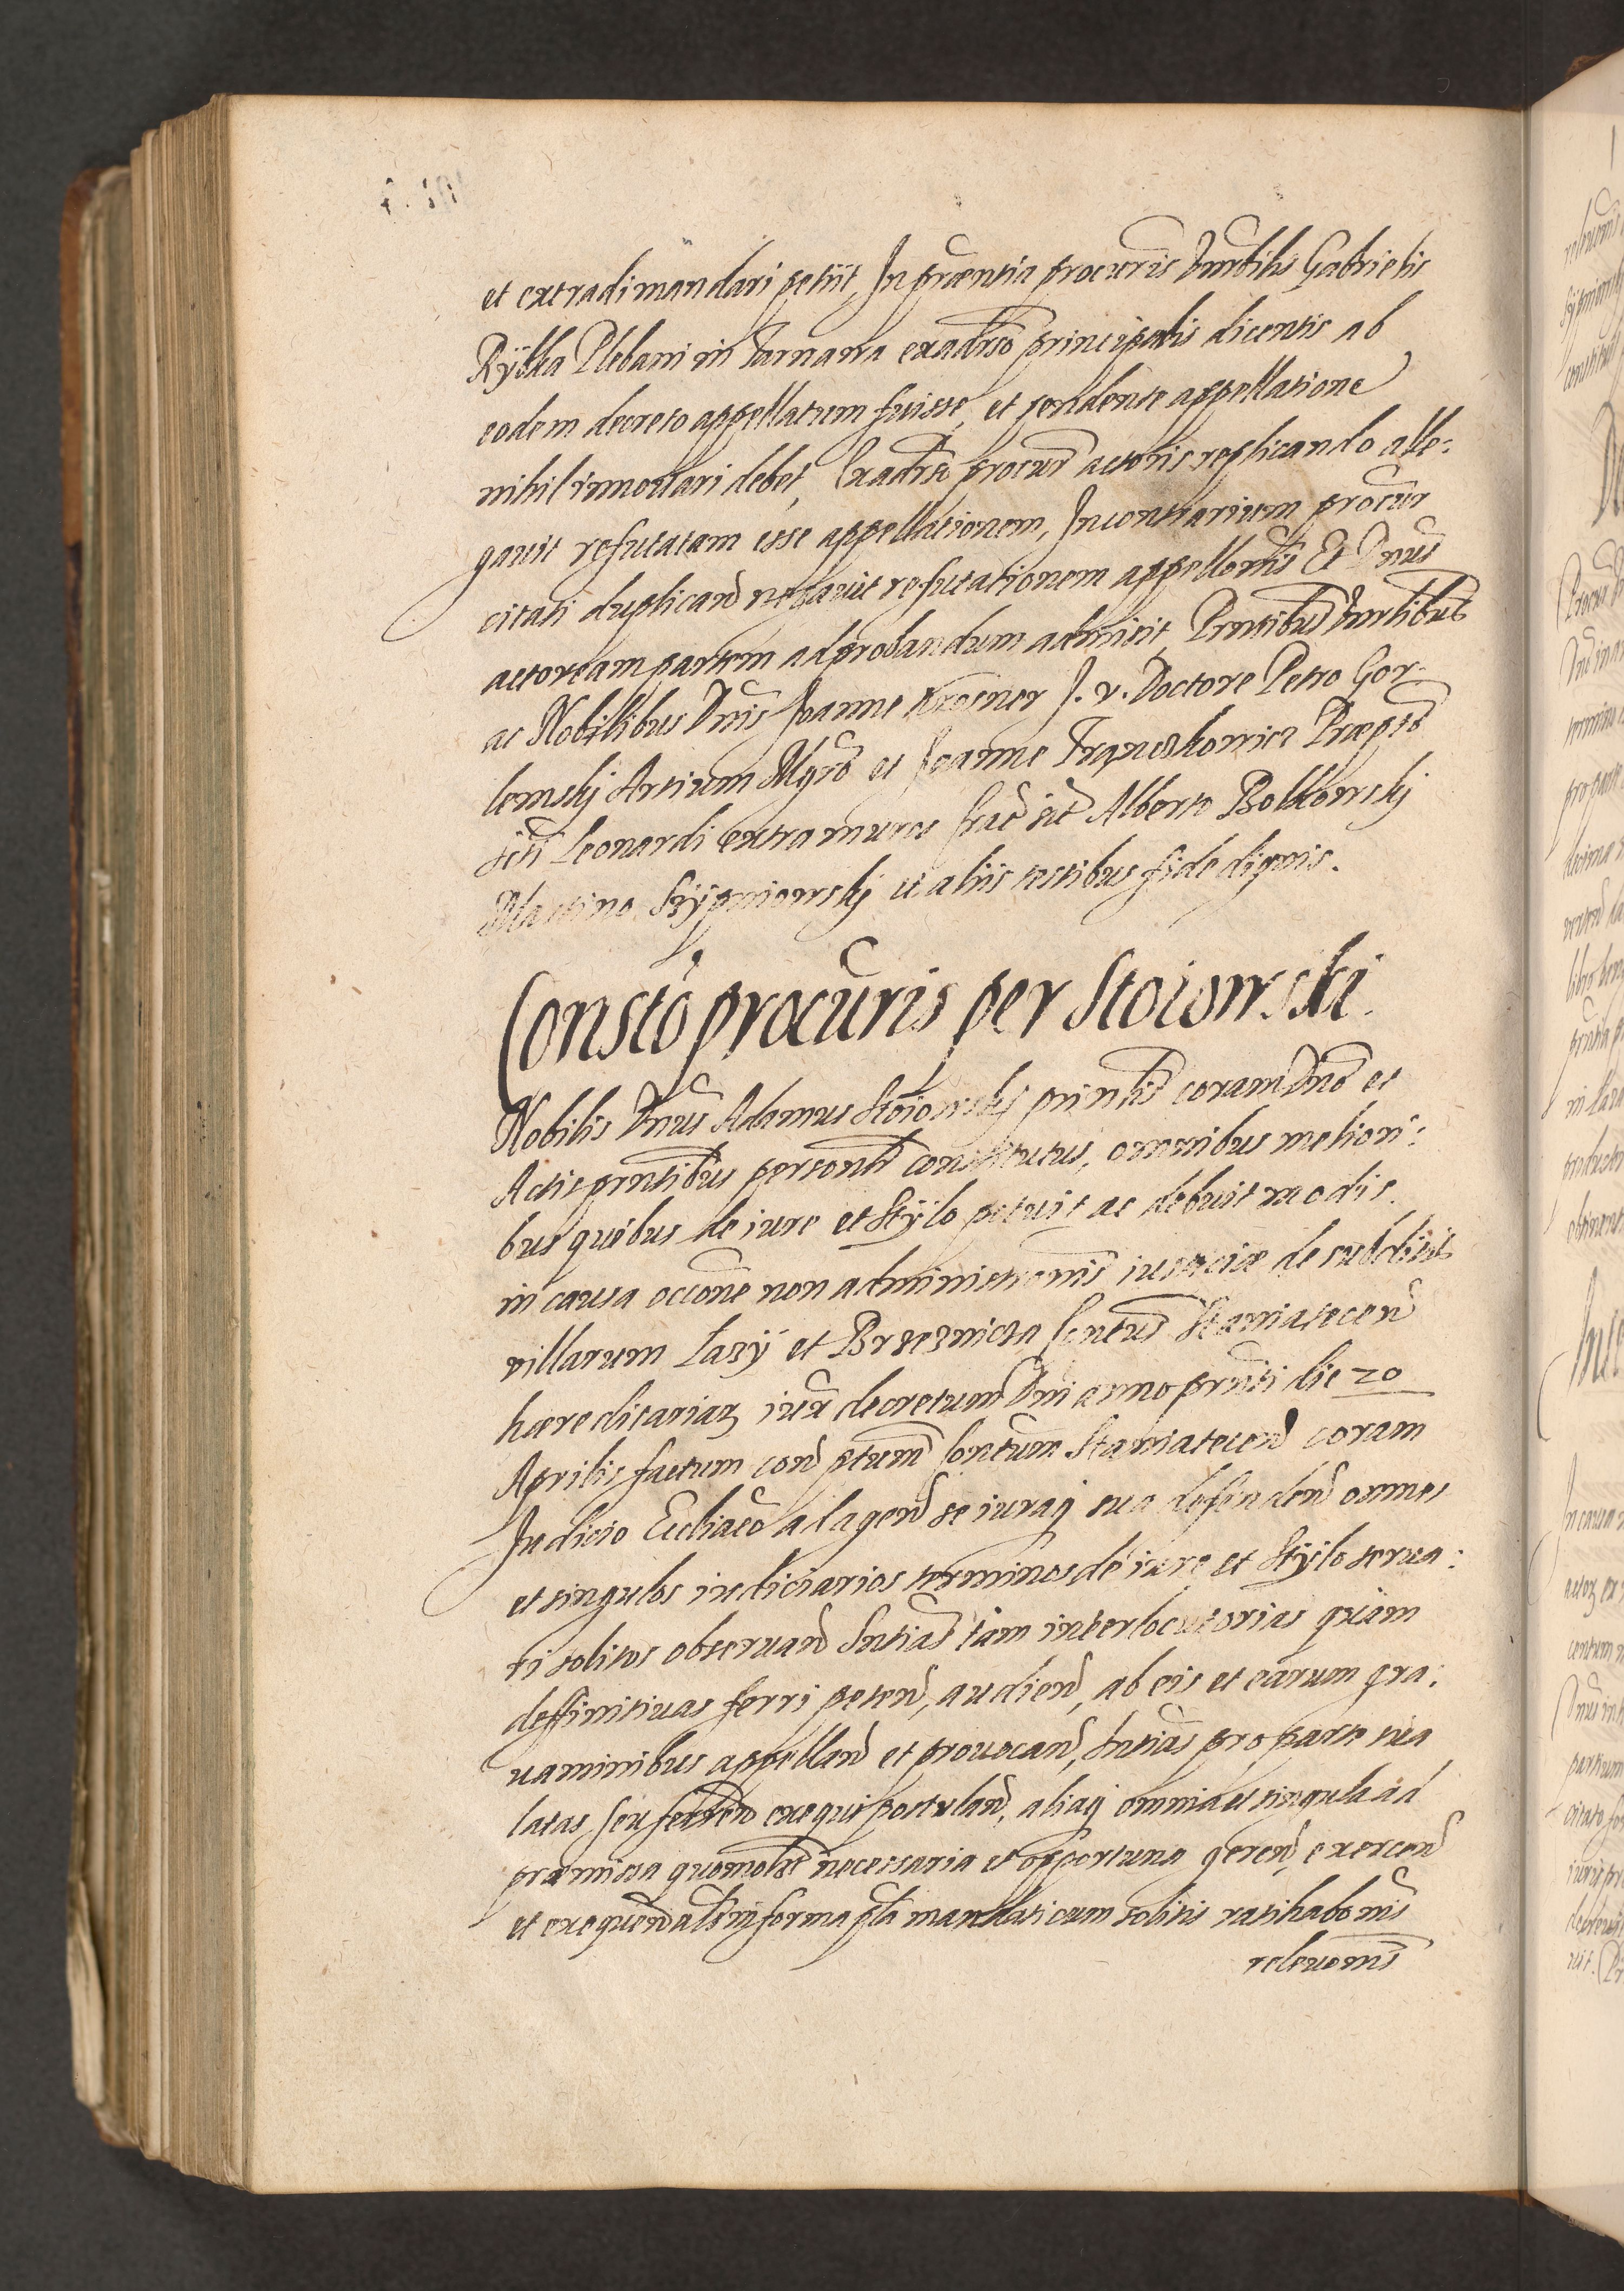 et extradi mandari petiit, In prӕntia procuris Vnrbilis Gabrielis
Rÿbka Plebani in Tarnawa exadṽso principalis dicentis ab
eodem decreto appellatum fuisse, et pendente appellatione
nihil innouari debet, Exadṽso procur actoris replicando alle:
gauit refutatam esse appellationem, In contrarium procur
citati duplicand negauit refutationem appellonis Et Dnus
actoream partem ad probandum admisit, Prntibus Vnrlibus
ac Nobillibus Dnis Joanne Krosner J. v. Doctore Petro Gor-
lemskj Artium Mgro et Joanne Praepto
scti Leonardi extra muros Crac sit Alberto Bolkowskj
Martino Szÿpniowskj et aliis testibus fide dignis.
Constō procūris per Stoiowski.
Nobilis Dnus Adamus Stoiowskj prinlis coram Dno et
Actis prntibus personlr constitutus, omnibus meliori:
bus quibus de iure et Stÿlo potuit ac debuit modis.
in causa occone non administronis iusticiæ de subditis
villarum Lazÿ et Brzeznicza Contus Staniatecen
hæreditariaȝ iux decretum Dni anno prnti die 20
Aprilis factum con ptum Contum Staniatecen coram
Judicio Eccliaco ad agend se iuraqȝ sua defenden omnes
et singulos iudiciarios terminos de iure et Stÿlo serua:
ri solitos obseruand Sntias tam interlocutorias quam
deffinitiuas ferri peten, audien, ab eis et earum gra:
uaminibus appelland et prouocand, Sntias pro parte sua
latas seu feren exequi postuland, aliaqȝ omnia et singula ad
præmissa quomolt necessaria et opportuna geren, exercen
et exequen alr in forma pla mandati cum solitis ratihabonis
releuonis